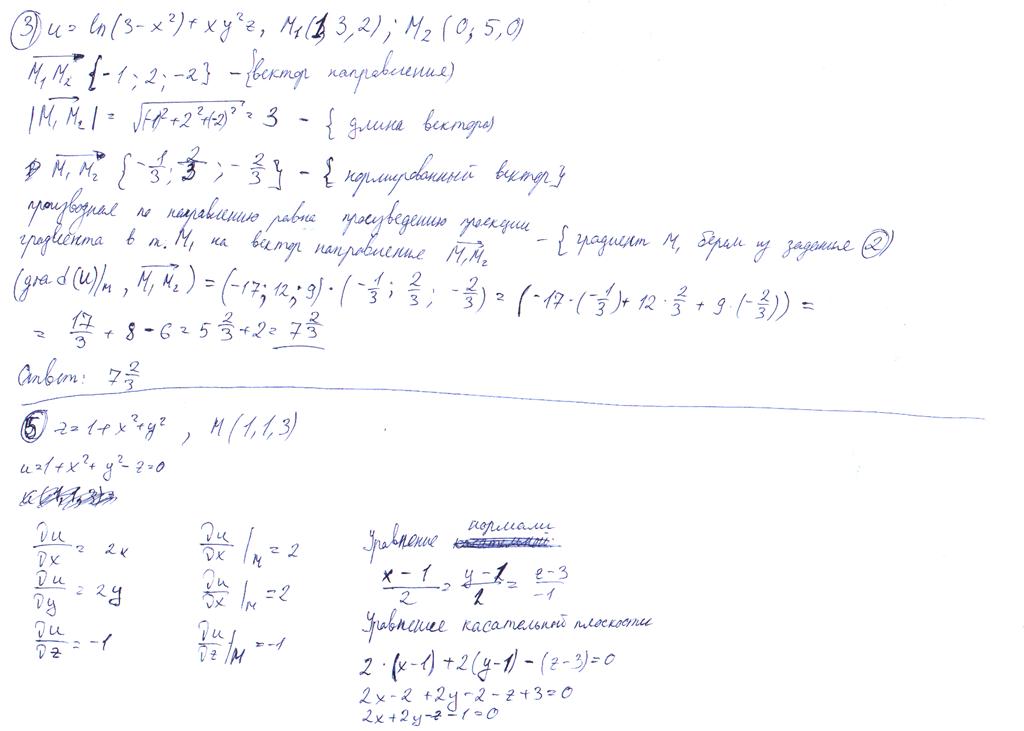 ③ u = ln(3-x²) + xy²z, M₁(1,3,2); M₂(0;5,0)
M₁M₂ {-1; 2; -2} - {вектор направления}
|M₁M₂| = √((-1)²+2²+(-2)²) = 3 - { длина вектора}
M₁M₂ {-1/3; 2/3; -2/3} - {нормированный вектор}
производная по направлению равна произведению проекции
градиента в т. M₁ на вектор направление M₁M₂ - { градиент M₁ берем из задания ②}
(grad(u)|ₘ, M₁M₂) = (-17; 12; 9)·(-1/3; 2/3; -2/3) = (-17·(-1/3) + 12·2/3 + 9·(-2/3)) =
= 17/3 + 8 - 6 = 5 2/3 + 2 = 7 2/3
Ответ: 7 2/3
⑤ z = 1 + x² + y², M(1,1,3)
u = 1 + x² + y² - z = 0
∂u/∂x = 2x
∂u/∂y = 2y
∂u/∂z = -1
∂u/∂x |ₘ = 2
∂u/∂x |ₘ = 2
∂u/∂z |ₘ = -1
Уравнение нормали
(x-1)/2 = (y-1)/2 = (z-3)/-1
Уравнение касательной плоскости
2·(x-1) + 2(y-1) - (z-3) = 0
2x - 2 + 2y - 2 - z + 3 = 0
2x + 2y - z - 1 = 0